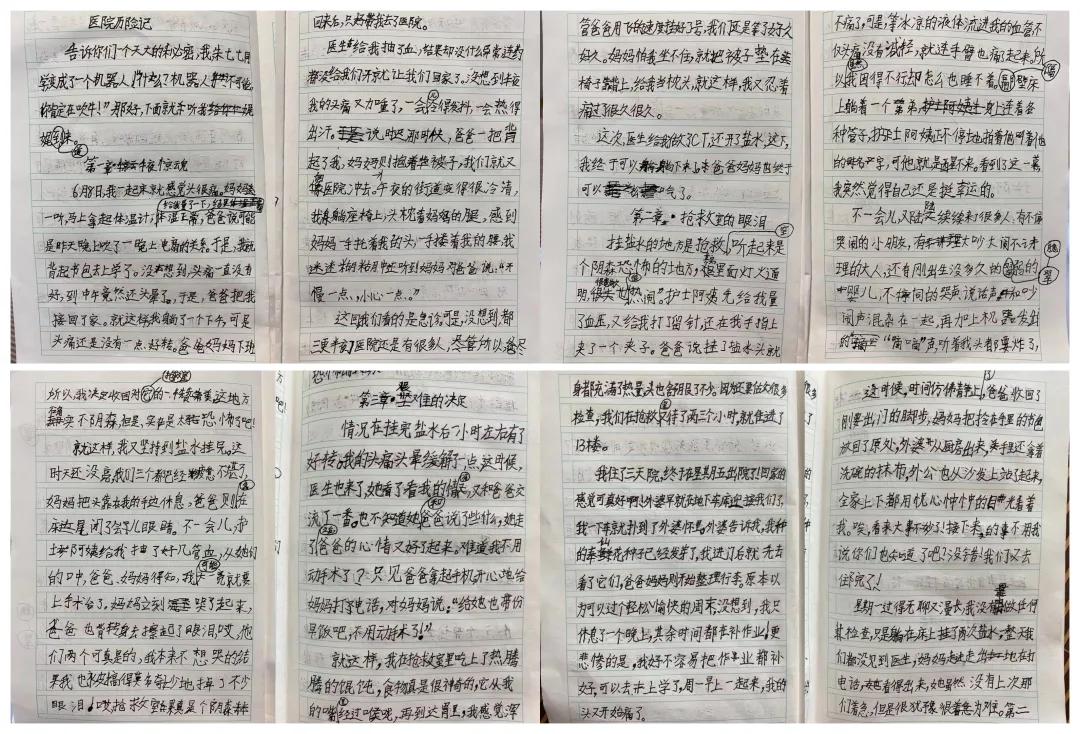 医院历险记
告诉你们一个天大的秘密，我朱七七月
变成了一个机器人！"什么？机器人不可能，
你肯定在吹牛！"那好，下面就来听我说
第一章 午夜惊魂
6月8日，我一起来就感觉头很痛。妈妈
一听，马上拿起体温计给我量了一下，体温正常，爸爸说可能
是昨天晚上吹了一晚上电扇的关系。于是，我就
背起书包去上学了。没想到，头痛一直没有
好，到中午竟然还头晕了。于是，爸爸把我
接回了家。就这样我躺了一个下午，可是
头痛还是没有一点好转。爸爸妈妈下班
回来后，只好带我去了医院。
医生给我抽了血，结果却没什么异常，连药
都没给我们开就让我们回家了。没想到半夜
我的头痛又加重了，一会冷得发抖，一会热得
出汗。说时迟那时快，爸爸一把背
起了我，妈妈则抱着些被子，我们就又
医院冲去。午夜的街道显得很冷清，
我躺座椅上，头枕着妈妈的腿，感到
妈妈一手托着我的头，一手搂着我的腰，我
迷迷糊糊中还听到妈妈对爸爸说："开
慢一点，小心一点。"
这回我们看的是急诊，可是，没想到，都
三更半夜了医院还是有很多人，尽管所以爸爸
管爸爸用飞的速度挂好了号，我们还是等了好久
好久。妈妈怕我坐不住，就把被子垫在
椅子上，给我当枕头，就这样，我又忍着
痛过了很久很久。
这次，医生给我做了CT，还开了盐水，这下，
我终于可以躺下来了，爸爸妈妈也终于
可以口气了。
第二章：抢救室里的眼泪
挂盐水的地方是抢救室，听起来是
个阴森恐怖的地方，里面灯火通
明，很"热闹"。护士阿姨先给我量
了血压，又给我打了留针，还在我手指上
夹了一个夹子。爸爸说挂了盐水头就
不痛了，可是，等冰凉的液体流进我的血管不
仅头痛没有减轻，就连手臂也痛起来。所
以我困得不行却怎么也睡不着。隔壁床
上躺着一个弟弟，身上连着各
种管子，护士阿姨还不停地拍着他叫着他
的名字，可他就是醒不来。看到了这一幕
我突然觉得自己还是挺幸运的。
不一会儿，又陆陆续续来了很多人，有不停
哭闹的小朋友，有大吵大闹不可
理的大人，还有刚出生没多久的
婴儿，不停间的哭声、说话声和吵
闹声混杂在一起，再加上机器发射
的"嘀嘀"声，听着我头都要炸了，
所以，我决定收回对它的夸奖，这地方
确实不阴森，但是，实在是太恐怖了吧！
就这样，我又坚持到盐水挂完。这
时天还没亮，我们三个都已经疲惫不堪了，
妈妈把头靠在我的手边休息，爸爸则在
床边尾闭了会儿眼睛。不一会儿，护
士阿姨给我抽了好几管血，从她们
的口中，爸爸、妈妈得知，我可能就要
上手术台了。妈妈立刻哭了起来，
爸爸也背转身去擦起了眼泪，哎，他
们两个可真是的，我本来不想哭的，结
果我也被搞得莫名其妙地掉了不少
眼泪。哎，抢救室果真是个阴森
第三章：艰难的决定
情况在挂完盐水后一小时左右有了
好转，我的头痛头晕缓解了一点，这时候，
医生也来了，她看了看我的情况，又和爸爸交
流了一番。也不知道她和爸爸说了些什么，她走
了之后爸爸的心情又好了起来。难道我不用
动手术了？只见爸爸拿起手机开心地给
妈妈打了电话，对妈妈说："给她也带份
早饭吧，不用动手术了！"
就这样，我在抢救室里吃上了热腾
腾的馄饨，食物真是很神奇的，它从我
的嘴里经过喉咙，再到达胃里，我感觉浑
身都充满了热量，头也舒服了不少。因为还要做很多
检查，我们在抢救室待了两三个小时，就住进了
13楼。
我住了三天院，终于在星期五出院了！回家的
感觉可真好啊！外婆早就在地下车库迎接我们了，
我一下车就扑到了外婆怀里。外婆告诉我，我种
的花种子已经发芽了，我进门后就先去
看了它们，爸爸妈妈则开始整理行李。原本以
为可以过个轻松愉快的周末，没想到，我只
休息了一个晚上，其余时间都在补作业，更
悲惨的是，我好不容易把作业都补
好，可以去上学了，周一早上一起来，我的
头又开始痛了。
这时候，时间仿佛静止了，爸爸收回了
刚要出门的脚步，妈妈把拎在手里的书包
放回了原处，外婆从厨房出来，手里还拿着
洗碗的抹布，外公也从沙发上站了起来，
全家上下都用忧心忡忡的目光看着
我。唉，看来大事不妙了，接下来的事不用我
说你们也知道了吧？没错！我们又去
住院了！
星期一过得无聊又漫长，我没有做任何
其检查，只是躺在床上挂了两次盐水，整天我
们都没见到医生，妈妈走进走出地在打
电话，她看得出来，她虽然没有上次那
们着急，但是很犹豫，很着急为难。第二